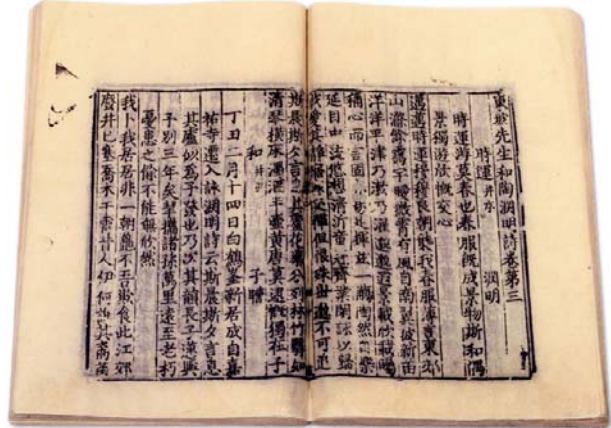 東坡先生和陶淵明詩卷第三
時運 并序 淵明
時運游莫春也春服既成景物斯和偶
景獨遊欣慨交心
邁邁時運穆穆良朝襲我春服薄言東郊
山滌餘靄宇曖微霄有風自南翼彼新苗
洋洋平津乃漱乃濯邈邈遐景載欣載矚
稱心而言 足揮茲一觴陶然自樂
延目中流悠想清沂童冠齊業閑詠以歸
我愛其靜寤寐交揮但恨殊世邈不可追
斯晨斯夕言息其廬花藥分列林竹翳如
清琴橫床濁酒半壺黃唐莫逮慨獨在予
和 并引 子瞻
丁丑二月十四日白鶴峯新居成自嘉
祐寺遷入詠淵明詩云斯晨斯夕言息
其廬似爲予發也乃次其韻長子邁與
予別三年矣挈攜諸孫萬里遠至老朽
憂患之餘不能無欣然
我卜我居居非一朝龜不吾欺食此江郊
廢井已塞喬木干霄昔人伊何誰其裔苗